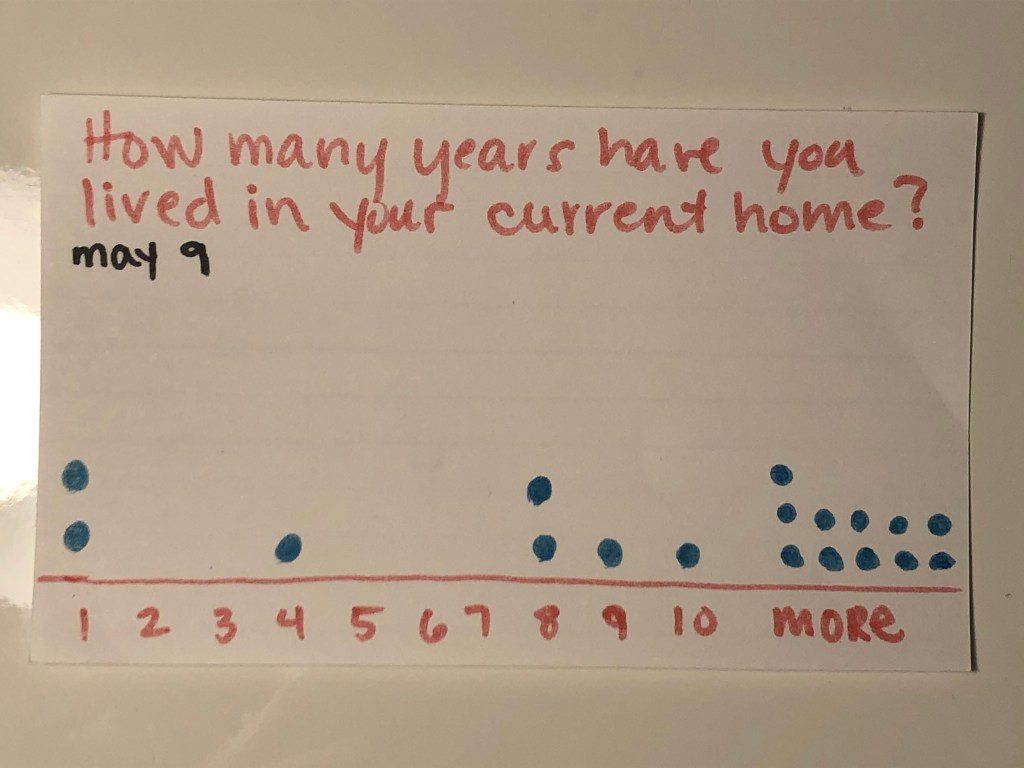 How many years have you
lived in your current home?
may 9
1 2 3 4 5 6 7 8 9 10 MORE